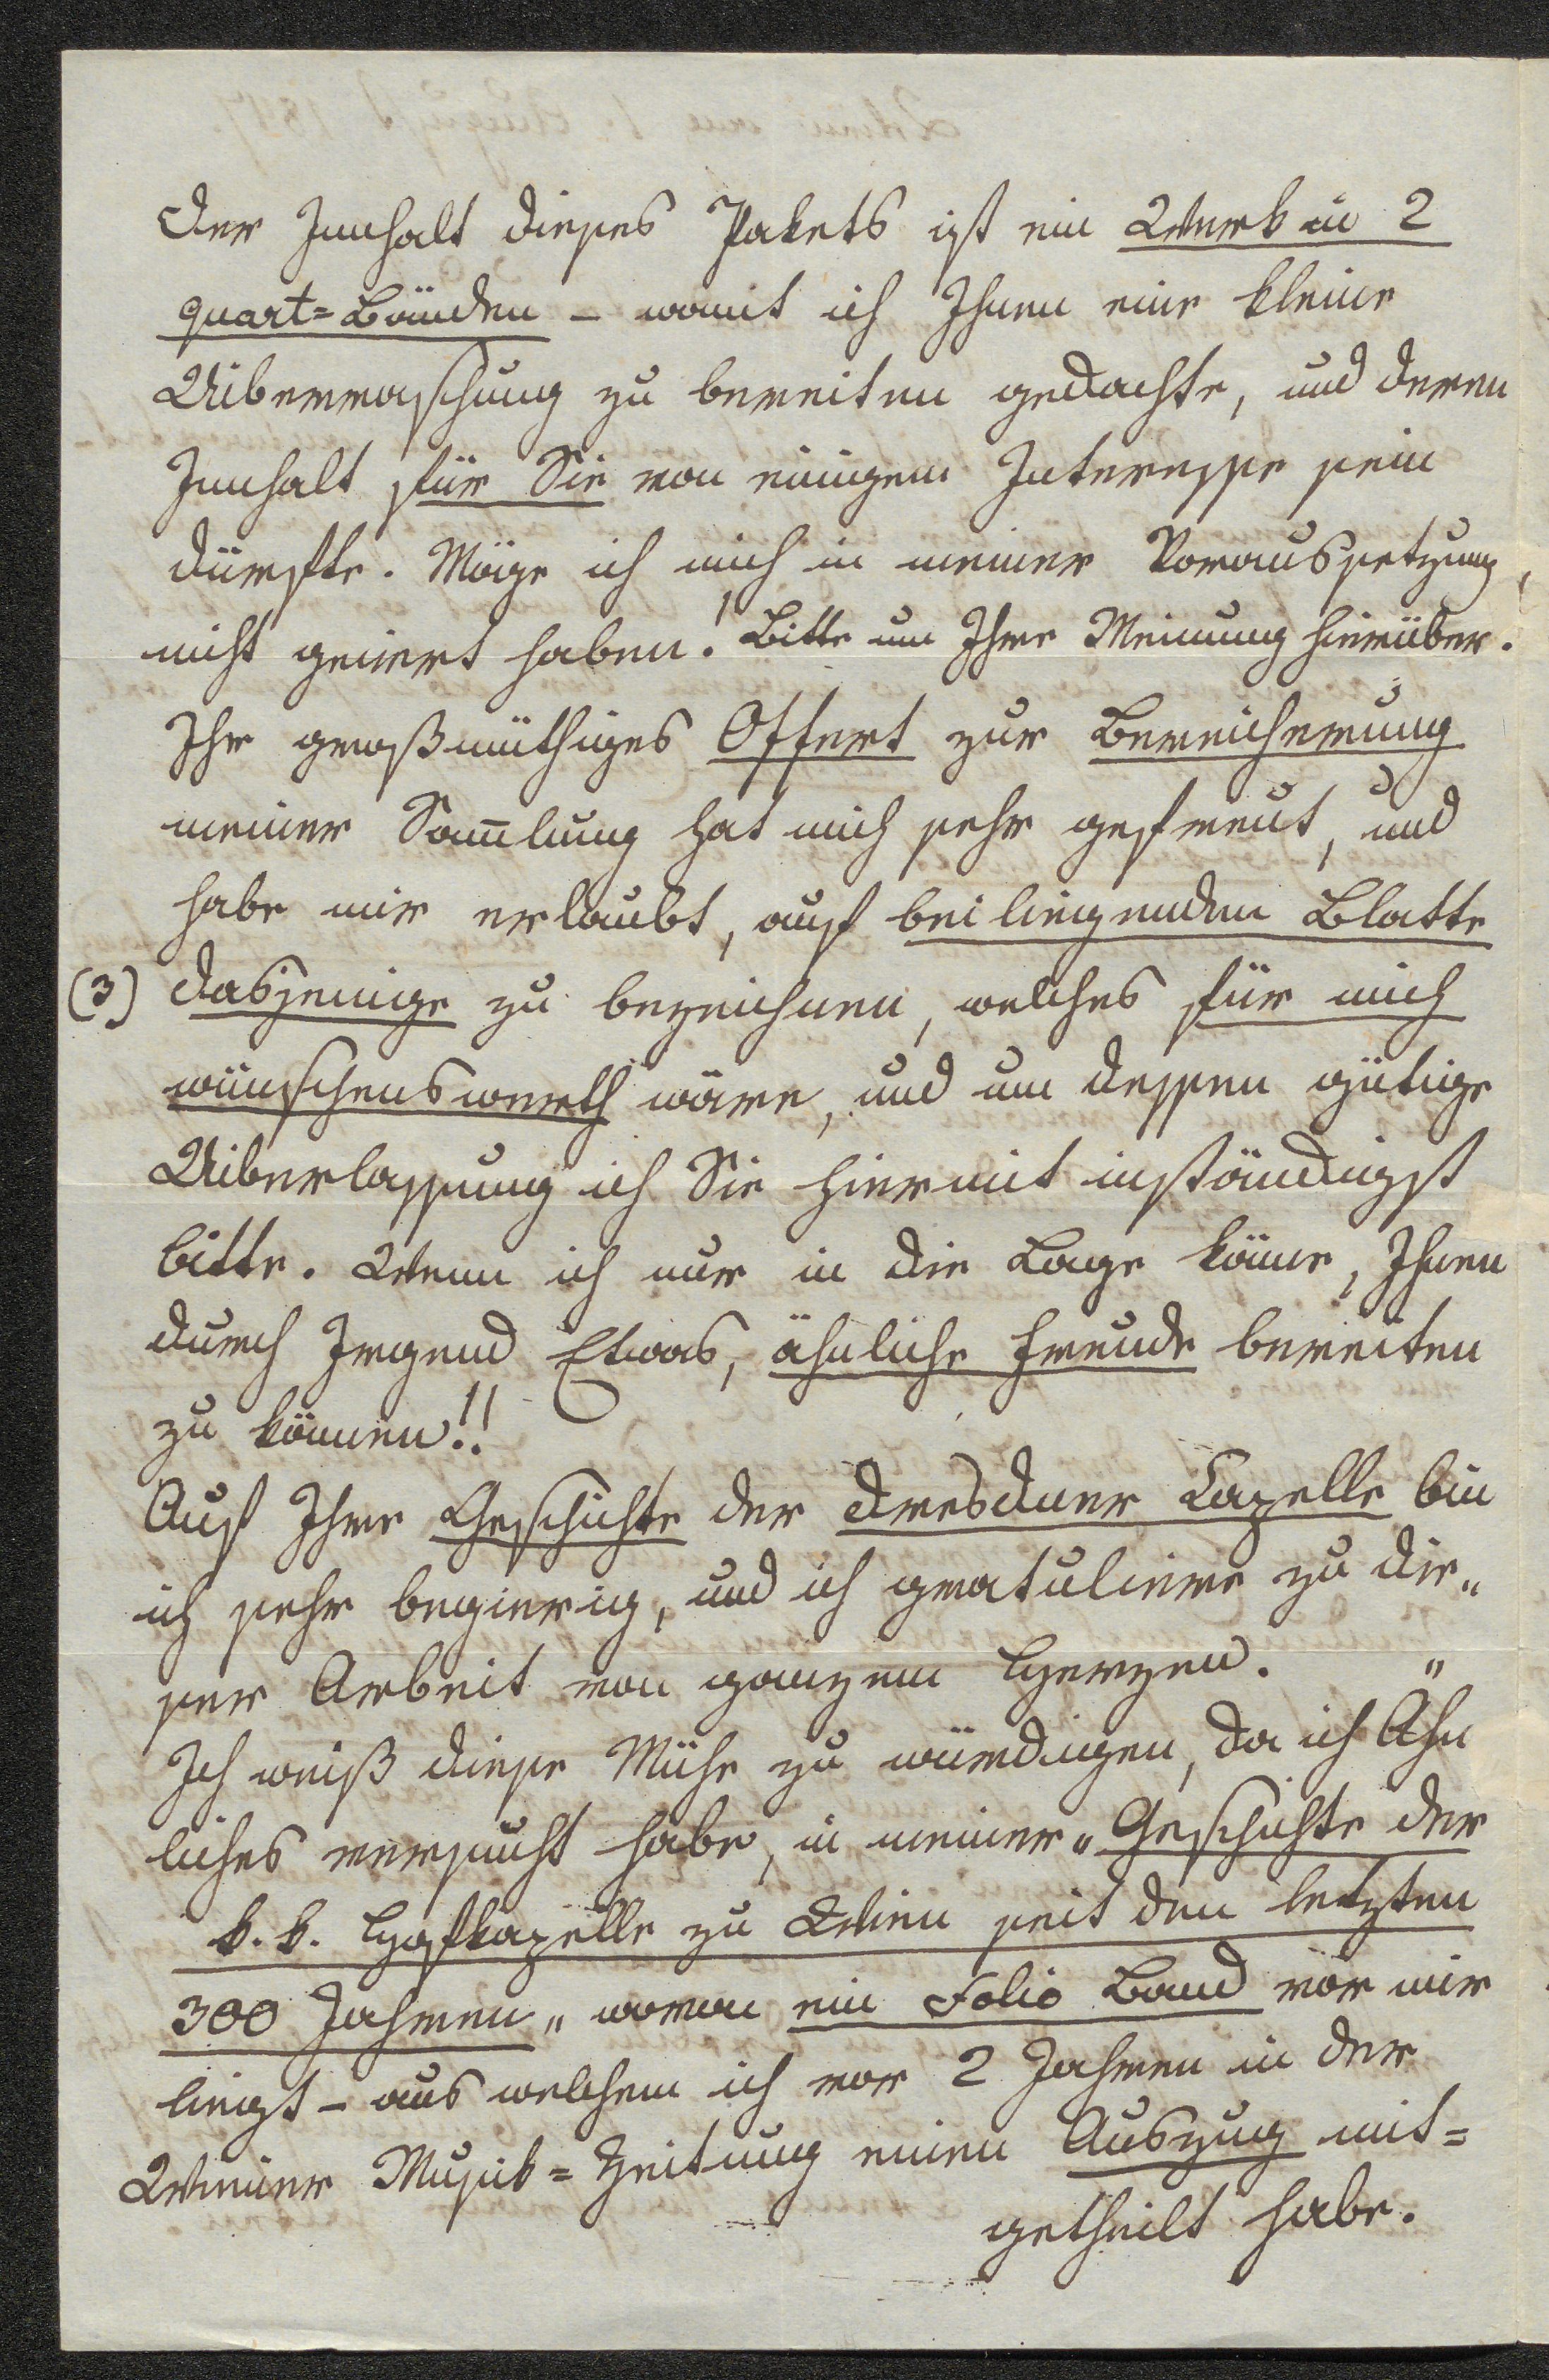 Der Innhalt dieses Pakets ist ein Werk in 2
quart=Bänden – womit ich Ihnen eine kleine
Uiberraschung zu bereiten gedachte, und deren
Innhalt für Sie von einigem Interesse sein
dürfte. Möge ich mich in meiner Voraussetzung,
nicht geirrt haben! Bitte um Ihre Meinung hierüber.
Ihr großmüthiges Offert zur Bereicherung
meiner Sam̅lung hat mich sehr gefreut, und
habe mir erlaubt, auf beiliegenden Blatte
(3) dasjenige zu bezeichnen, welches für mich
wünschenswerth wäre, und um dessen gütige
Uiberlassung ich Sie hiermit inständigst
bitte. Wenn ich nur in die Lage käme, Ihnen
durch Irgend Etwas, ähnliche Freude bereiten
zu können!!
Auf Ihre Geschichte der Dresdner Capelle bin
ich sehr begierig, und ich gratuliere zu die„
ser Arbeit von ganzem Herzen.
Ich weiß diese Mühe zu würdigen, da ich Ähn
liches versucht habe, in meiner „Geschichte der
k. k. Hofkapelle zu Wien seit den letzten
300 Jahren„ wovon ein Folio Band vor mir
liegt – aus welchem ich vor 2 Jahren in der
Wiener Musik=Zeitung einen Auszug mit=
getheilt habe.